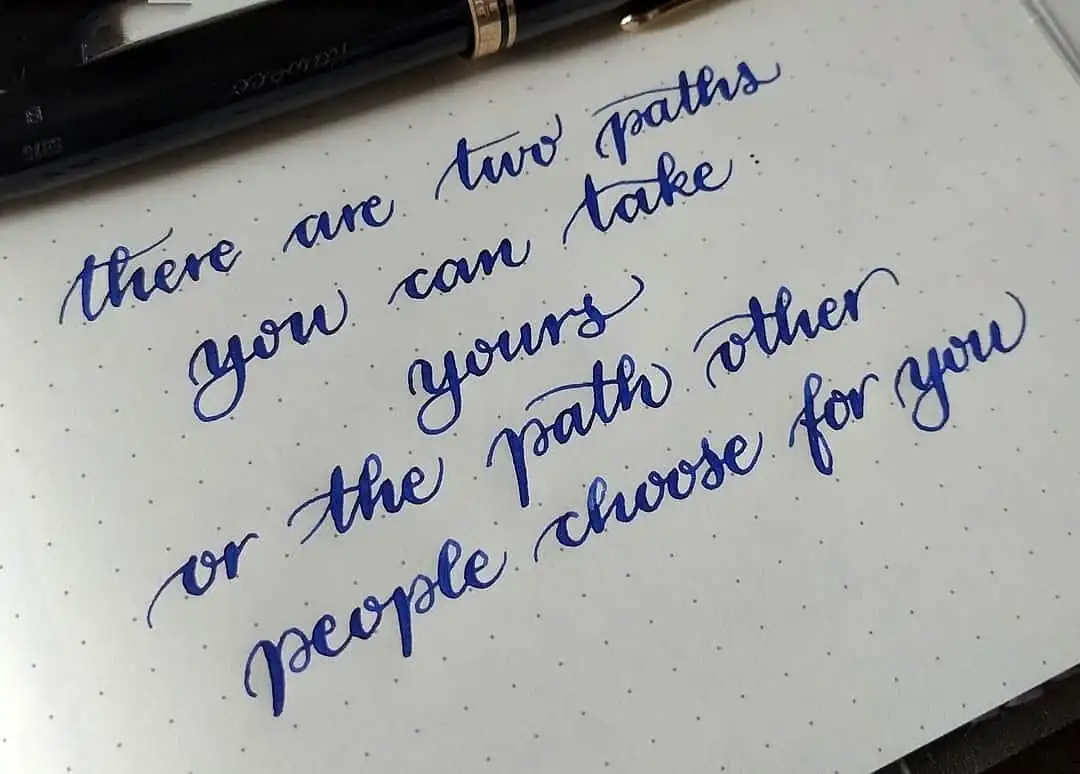 there are two paths
you can take:
yours
or the path other
people choose for you